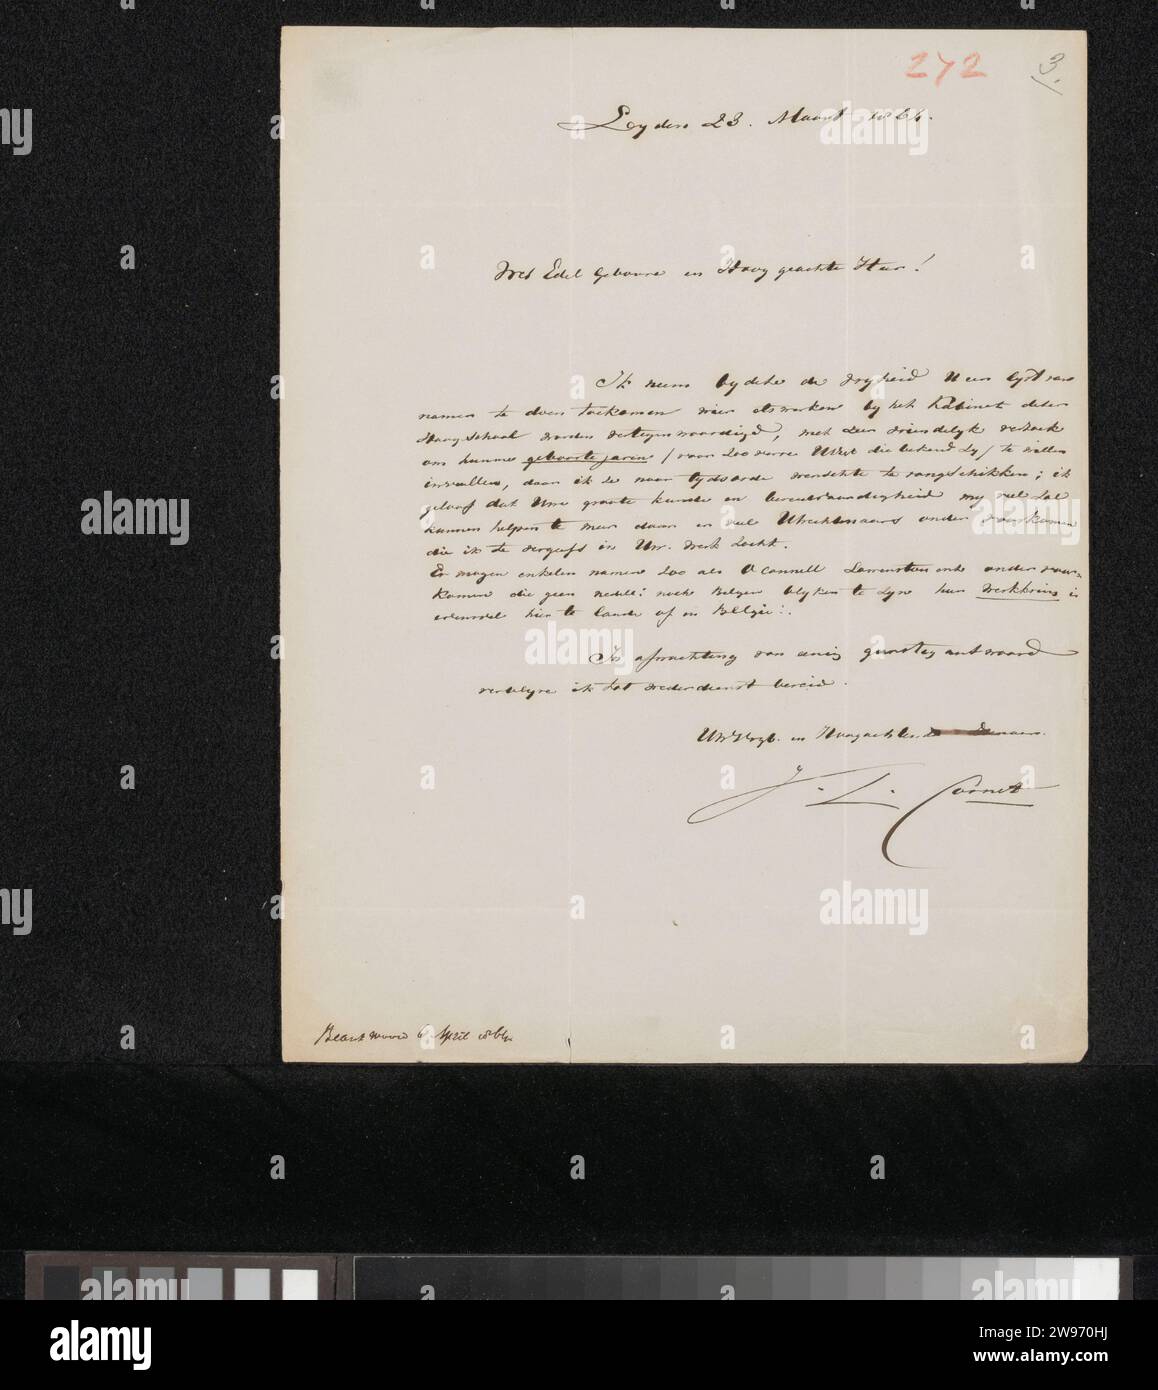 272 3.
Leyden 23. Maart 1864.
Wel Edel Geboore en Hoog geachte Heer!
Ik neem bydeze de vryheid U een lyst van
namen te doen toekomen wier etswerken by het Kabinet dezer
Hoogeschool worden vertegenwoordigd, met zeer vriendelyk verzoek
om hunne geboorte jaren (voor zoo verre UWEd die bekend zy) te willen
invullen, daar ik ze naar tydsorde wenschte te rangschikken; ik
geloof dat Uw groote kunde en bereidvaardigheid my veel zal
kunnen helpen te meer daar er veel Utrechtenaars onder voorkomen
die ik te vergeefs in Uw. werk zocht.
Er mogen enkelen namen zoo als O Connell Lamenstein enz onder voor-
komen die geen nederl: noch Belgen blyken te zyn hun werkkring is
evenwel hier te lande of in België.
In afwachting van eenig gunstig antwoord
verblyve ik tot wederdienst bereid.
UwWegb. en Hoogachtende Dienaar.
J. L. Cornet
Beantwoord 6 April 1864
alamy
Image ID: 2W970HJ
www.alamy.com